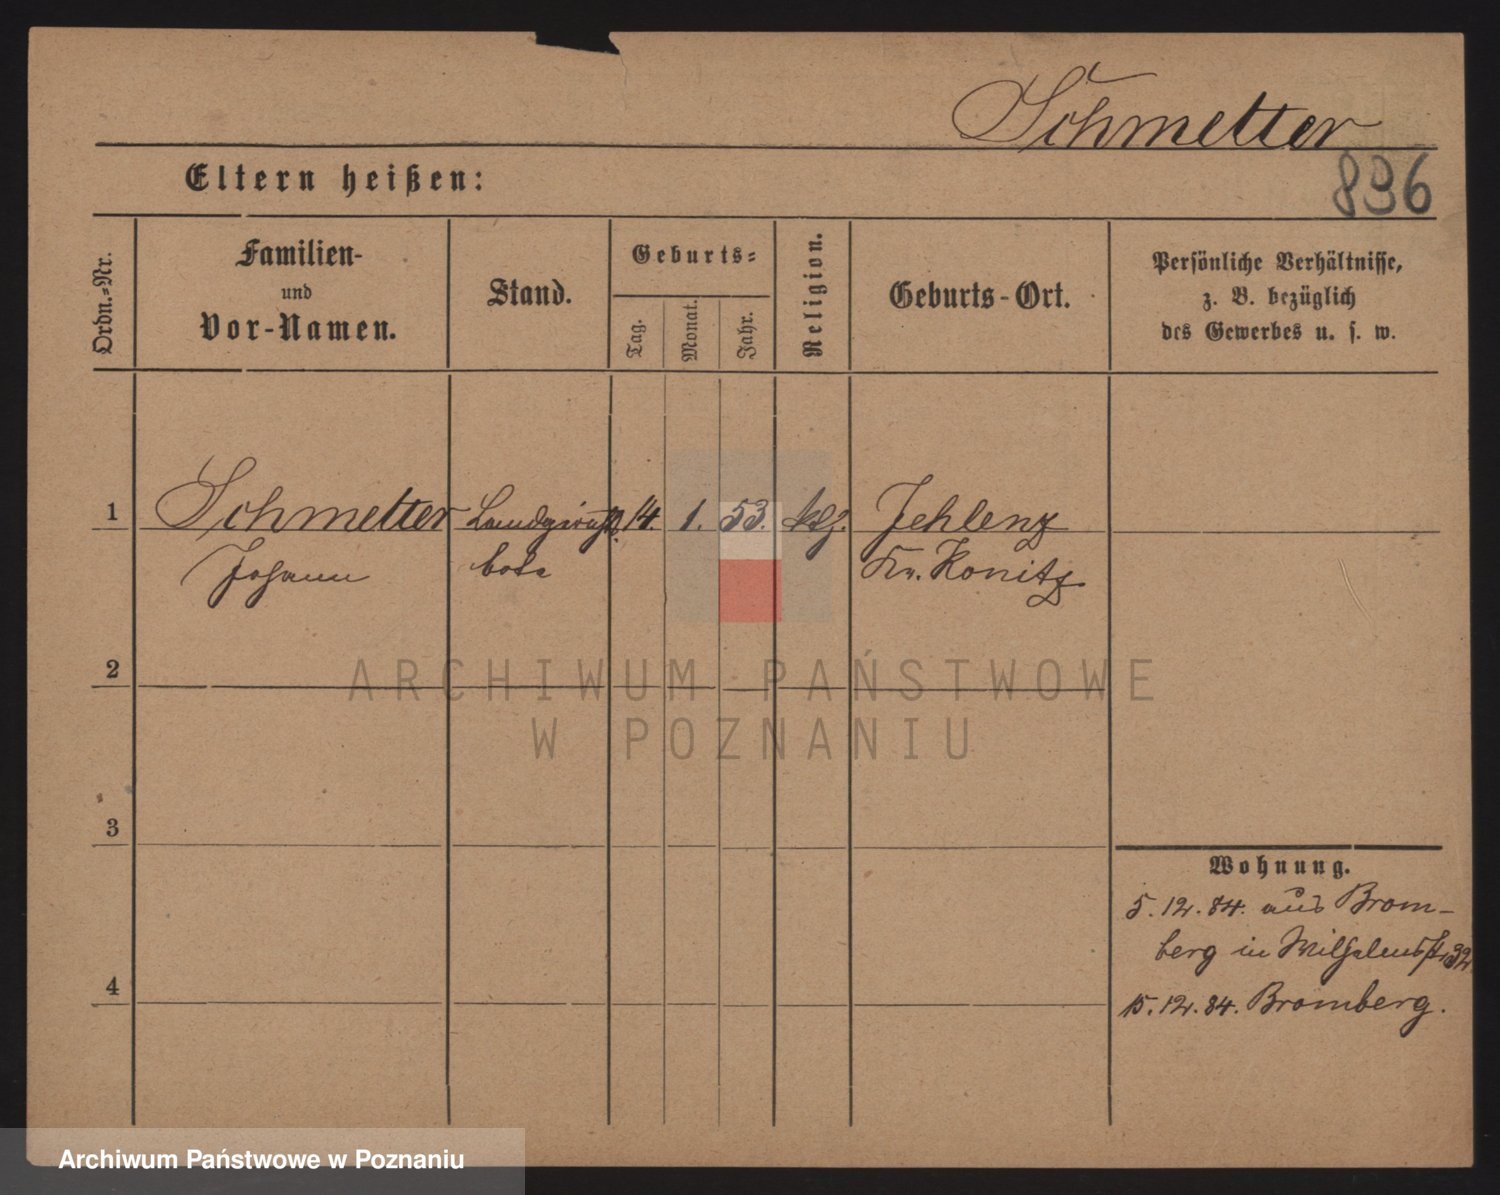 Schmetter
896
Eltern heißen:
Ordn.-Nr.
Familien-
und
Vor-Namen.
Stand.
Geburts-
Tag.
Monat.
Jahr.
Religion.
Geburts-Ort.
Persönliche Verhältnisse,
z. B. bezüglich
des Gewerbes u. s. w.
1 Schmetter 14. 1. 53. Jehlenz
Johann bote Kr. Konitz
2
3
4
Wohnung.
5.12.84. aus Brom-
berg in Wilhelmstr 32
15.12.84. Bromberg.
ARCHIWUM PAŃSTWOWE
W POZNANIU
Archiwum Państwowe w Poznaniu